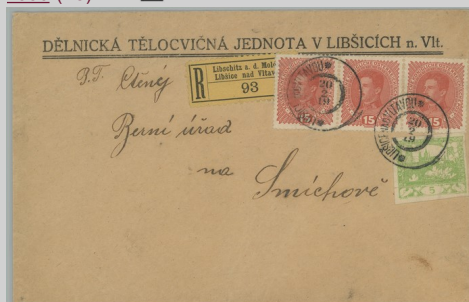 DĚLNICKÁ TĚLOCVIČNÁ JEDNOTA V LIBŠICÍCH n. Vlt.
P.T. Ctěný
R
Libschitz a. d. Mold
Libšice nad Vltav
93
Berní úřad
na Smíchově
15
15
5
20
2
19
20
2
19